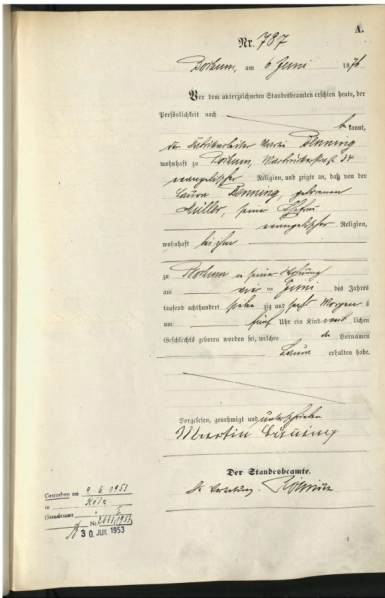 A.
Nr. 787
Bochum, am 6 Juni 1876
Vor dem unterzeichneten Standesbeamten erschien heute, der
Persönlichkeit nach
kannt,
der Fabrikarbeiter
wohnhaft zu Bochum, 34
evangelischer Religion, und zeigte an, daß von der
Laura geborenen
Müller, seiner Ehefrau
evangelischer Religion,
wohnhaft bei ihm
zu Bochum in seiner Wohnung
am Juni des Jahres
tausend achthundert siebenzig und sechs Morgens
um fünf Uhr ein Kind weiblichen
Geschlechts geboren worden sei, welches den Vornamen
Laura erhalten habe.
Vorgelesen, genehmigt und unterschrieben
Martin
Der Standesbeamte.
In Vertretung.
Gestorben am 9. 6. 1953
in Köln
(Standesamt I
Nr.
30. JUN. 1953